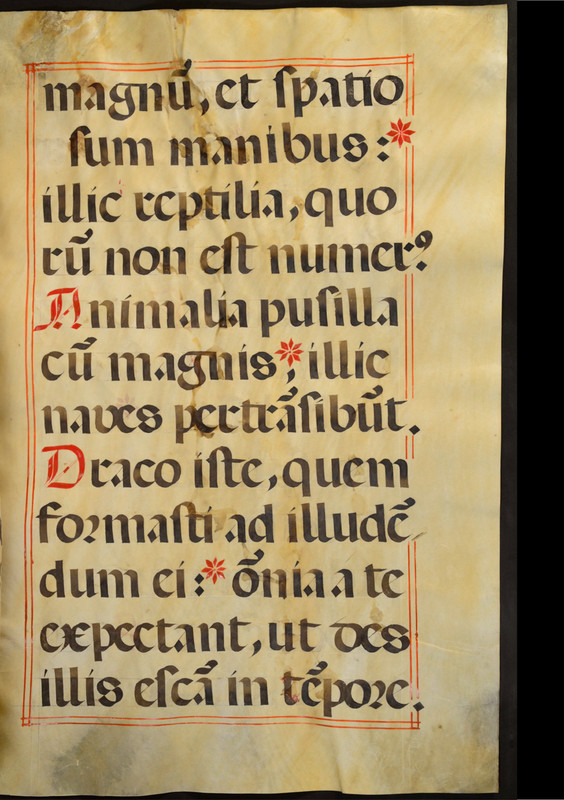 magnū, et ſpatio
ſum manibus :*
illic reptilia, quo
rū non eſt numerꝰ.
Animalia puſilla
cū magnis*, illic
naves pertrāſibūt.
Draco iſte, quem
foꝛmaſti ad illudē
dum ei :* ōnia a te
expectant, ut des
illis eſcā in tēpoꝛe.